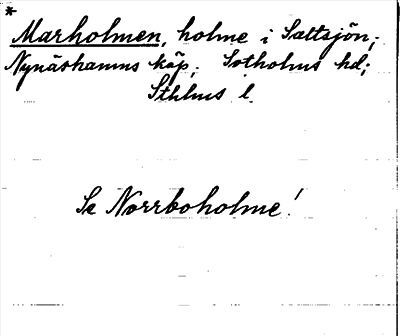 *
Marholmen, holme i Saltsjön,
Nynäshamns köp. Sotholms hd;
Sthlms l.
Se Norrboholme!